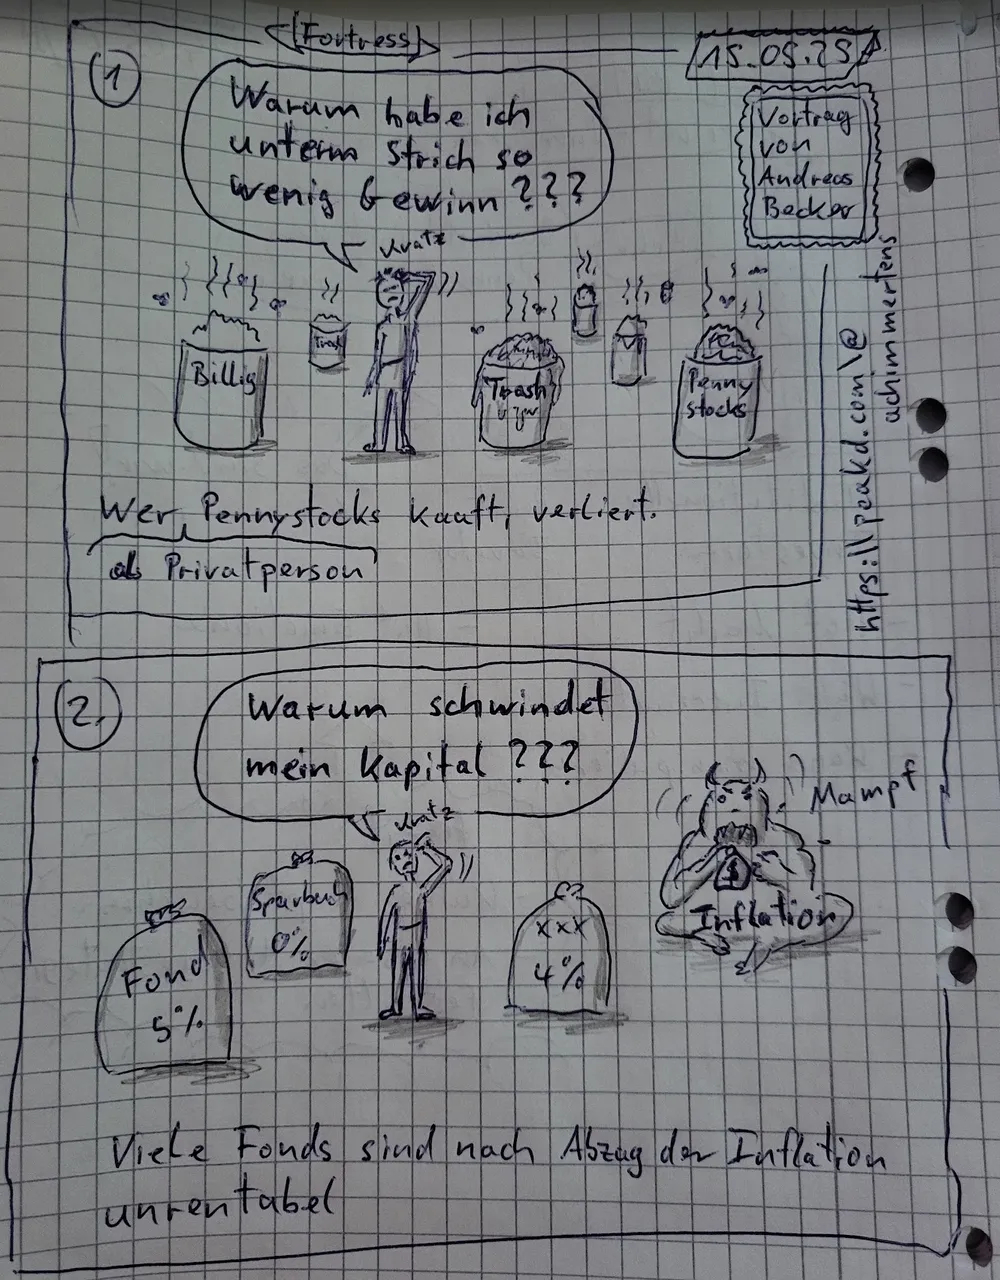 (Fortress)
15.05.25
1
Warum habe ich
unterm Strich so
wenig Gewinn ???
Vortrag
von
Andreas
Becker
kratz
Billig
Trash
Trash
Penny
stocks
Wer, Pennystocks kauft, verliert.
als Privatperson
https://peakd.com/@
achimmertens
2.
Warum schwindet
mein Kapital ???
kratz
Mampf
Sparbuch
0%
Fond
5%
xxx
4%
$
Inflation
Viele Fonds sind nach Abzug der Inflation
unrentabel